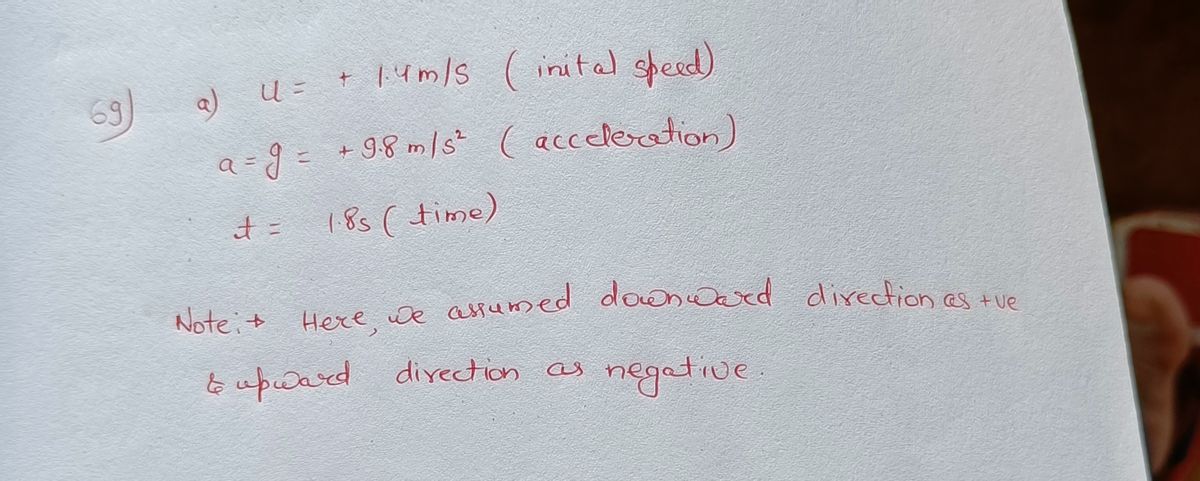 69) a) u = + 1.4m/s ( inital speed)
a = g = + 9.8 m/s² ( acceleration)
t = 1.8s ( time)
Note:→ Here, we assumed downward direction as +ve
& upward direction as negative.